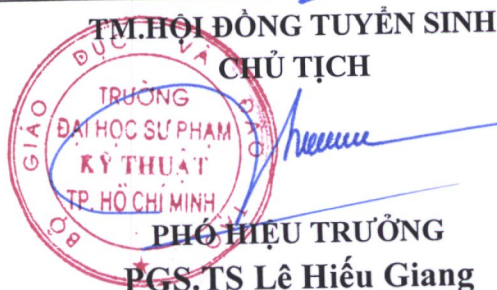 TM.HỘI ĐỒNG TUYỂN SINH
CHỦ TỊCH
BỘ GIÁO DỤC VÀ ĐÀO TẠO
TRƯỜNG
ĐẠI HỌC SƯ PHẠM
KỸ THUẬT
TP. HỒ CHÍ MINH
PHÓ HIỆU TRƯỞNG
PGS.TS Lê Hiếu Giang